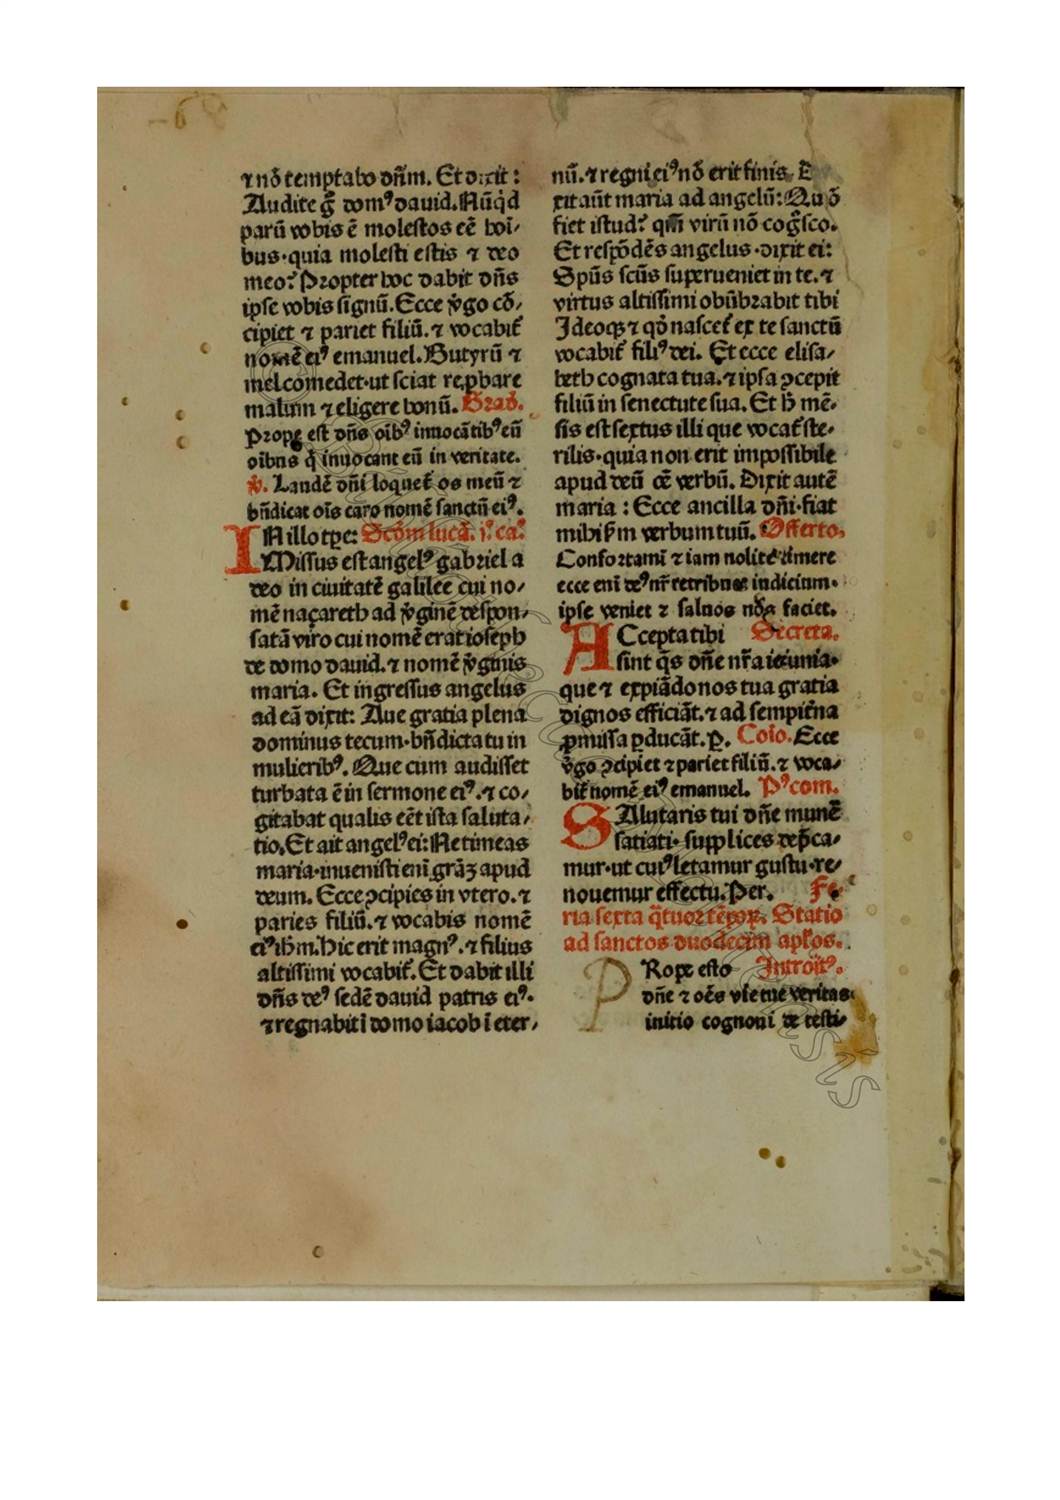 ⁊ nō temptabo dñm. Et dixit:
Audite g̃ domꝰ dauid. Nūq̇d
parū vobis ē molestos eē hoī-
bus. quia molesti estis ⁊ deo
meo? Propter hoc dabit dñs
ipse vobis signū. Ecce v̾go cō-
cipiet ⁊ pariet filiū. ⁊ vocabit̃
nomē eiꝰ emanuel. Butyrū ⁊
mel comedet. ut sciat reꝓbare
malum ⁊ eligere bonū. Grad.
Prope est dñs oībꝰ inuocātibꝰ eū
oibus q̇ inuocant eū in veritate.
℣. Laudē dñi loquet̃ os meū ⁊
bñdicat oīs caro nomē sanctū eiꝰ.
IN illo tꝑe: Scḋm lucā. i. ca.
Missus est angelꝰ gabriel a
deo in ciuitatē galilee cui no-
mē naçareth ad v̾ginē despon-
satā viro cui nomē erat ioseph
de domo dauid. ⁊ nomē v̾ginis
maria. Et ingressus angelus
ad eā dixit: Aue gratia plena
dominus tecum. bñdicta tu in
mulieribꝰ. Que cum audisset
turbata ē in sermone eiꝰ. ⁊ co-
gitabat qualis eēt ista saluta-
tio. Et ait angelꝰ ei: Ne timeas
maria. inuenisti eni grãꝫ apud
deum. Ecce ↄcipies in vtero. ⁊
paries filiū. ⁊ vocabis nomē
eiꝰ ihm. Hic erit magnꝰ. ⁊ filius
altissimi vocabit̃. Et dabit illi
dñs deꝰ sedē dauid patris eiꝰ.
⁊ regnabit ī domo iacob ī eter-
nū. ⁊ regni eiꝰ nō erit finis. D
xit aūt maria ad angelū: Quō
fiet istud? qm̃ virū nō cog̃sco.
Et respōdēs angelus. dixit ei:
Spūs scūs superueniet in te. ⁊
virtus altissimi obūbrabit tibi
Ideoqꝫ ⁊ qḋ nascet̃ ex te sanctū
vocabit̃ filiꝰ dei. Et ecce elisa-
beth cognata tua. ⁊ ipsa ↄcepit
filiū in senectute sua. Et h̄ mē-
sis est sextus illi que vocat̃ ste-
rilis. quia non erit impossibile
apud deū oē verbū. Dixit autē
maria: Ecce ancilla dñi. fiat
mihi ẜm verbum tuū. Offerto.
Confortamī ⁊ iam nolite timere
ecce eni deꝰ nr̃ retribuet iudicium.
ipse veniet ⁊ saluos nos faciet.
ACcepta tibi Secreta.
sint q̄s dñe nr̃a ieiunia.
que ⁊ expiādo nos tua gratia
dignos efficiāt. ⁊ ad sempit̾na
ꝓmissa ꝑducāt. ꝑ. Coīo. Ecce
v̾go ↄcipiet ⁊ pariet filiū. ⁊ voca-
bit̃ nomē eiꝰ emanuel. Pꝰcom.
SAlutaris tui dñe munē
satiati. supplices dep̄ca-
mur. ut cuiꝰ letamur gustu. re-
nouemur effectu. Per. Fe-
ria sexta q̄tuor tēpoꝝ. Statio
ad sanctos duodecim apl̃os.
PRope esto Introitꝰ.
dñe ⁊ oēs vie tue veritas
initio cognoui de testi-